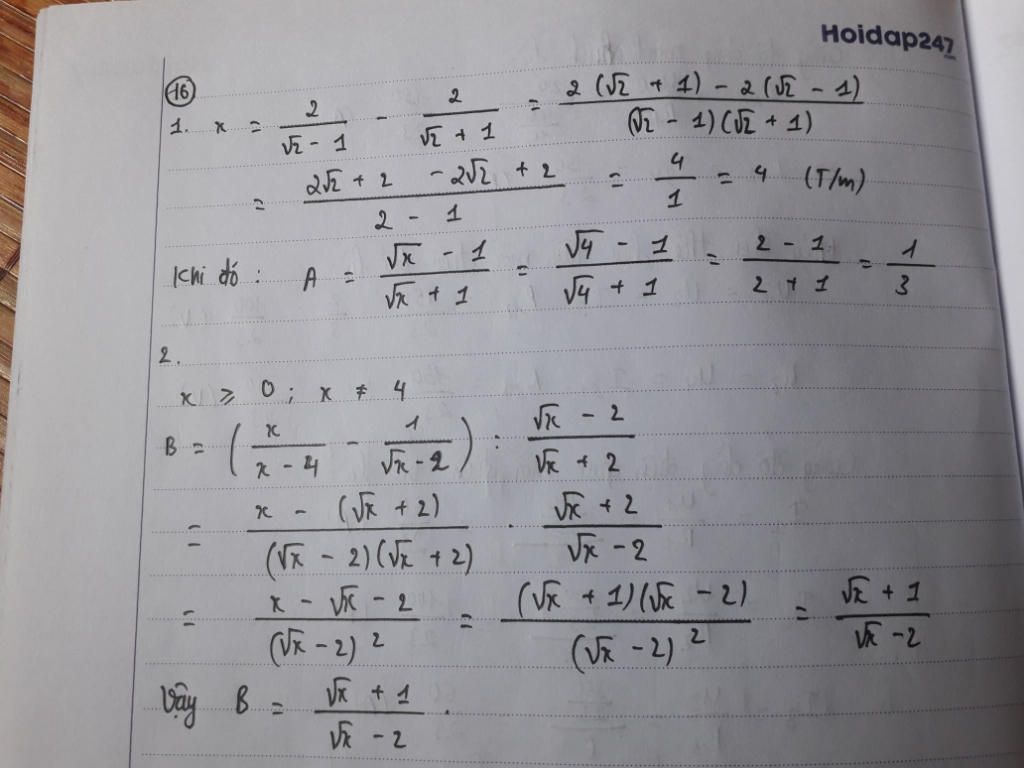 Hoidap247
16
1. x = 2/(√2 - 1) - 2/(√2 + 1) = (2(√2 + 1) - 2(√2 - 1))/((√2 - 1)(√2 + 1))
= (2√2 + 2 - 2√2 + 2)/(2 - 1) = 4/1 = 4 (T/m)
Khi đó : A = (√x - 1)/(√x + 1) = (√4 - 1)/(√4 + 1) = (2 - 1)/(2 + 1) = 1/3
2.
x ⩾ 0 ; x ≠ 4
B = (x/(x - 4) - 1/(√x - 2)) : (√x - 2)/(√x + 2)
= (x - (√x + 2))/((√x - 2)(√x + 2)) . (√x + 2)/(√x - 2)
= (x - √x - 2)/(√x - 2)² = ((√x + 1)(√x - 2))/(√x - 2)² = (√x + 1)/(√x - 2)
Vậy B = (√x + 1)/(√x - 2) .